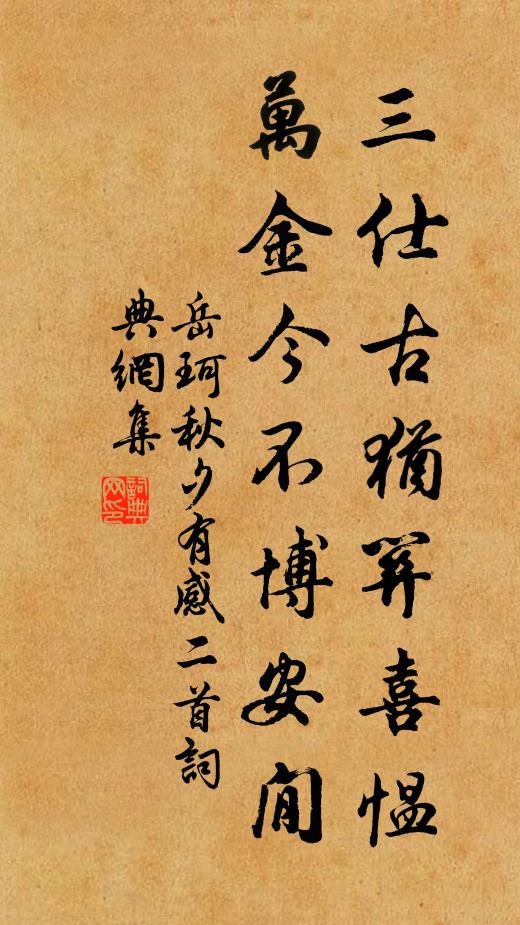 三仕古猶笄喜愠
萬金今不博安閒
岳珂秋夕有感二首詞
典網集
詞典網印